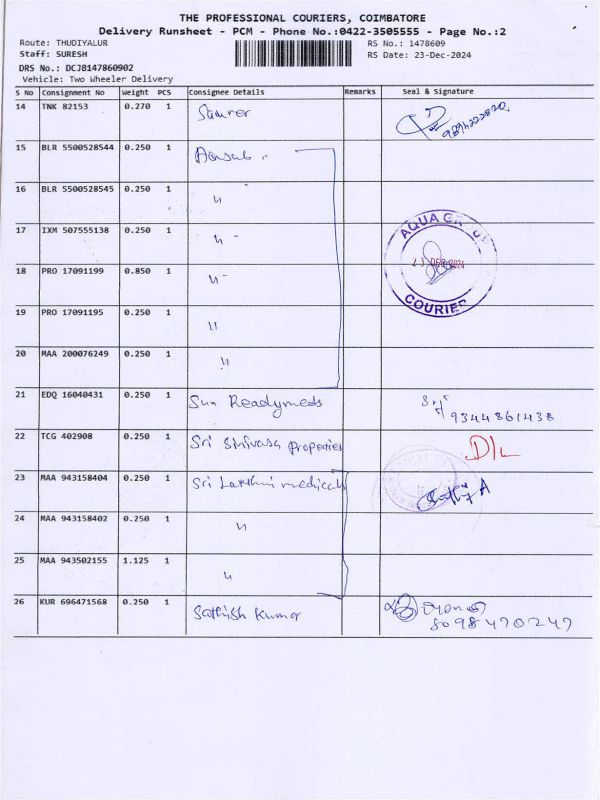 THE PROFESSIONAL COURIERS, COIMBATORE
Delivery Runsheet - PCM - Phone No.:0422-3505555 - Page No.:2
Route: THUDIYALUR RS No.: 1478609
Staff: SURESH RS Date: 23-Dec-2024
DRS No.: DCJB147860902
Vehicle: Two Wheeler Delivery
S No Consignment No Weight PCS Consignee Details Remarks Seal & Signature
14 TNK 82153 0.270 1
15 BLR 5500528544 0.250 1
16 BLR 5500528545 0.250 1 "
17 IXM 507555138 0.250 1 "
AQUA
18 PRO 17091199 0.850 1 "
COURIER
19 PRO 17091195 0.250 1 "
20 MAA 200076249 0.250 1 "
21 EDQ 16040431 0.250 1 Sun Readymeds 9344861438
22 TCG 402908 0.250 1 Sri Srivasa Properties D/L
23 MAA 943158404 0.250 1 Sri Lakthmi medicals
24 MAA 943158402 0.250 1 "
25 MAA 943502155 1.125 1 "
26 KUR 696471568 0.250 1 Sathish Kumar 8098470247